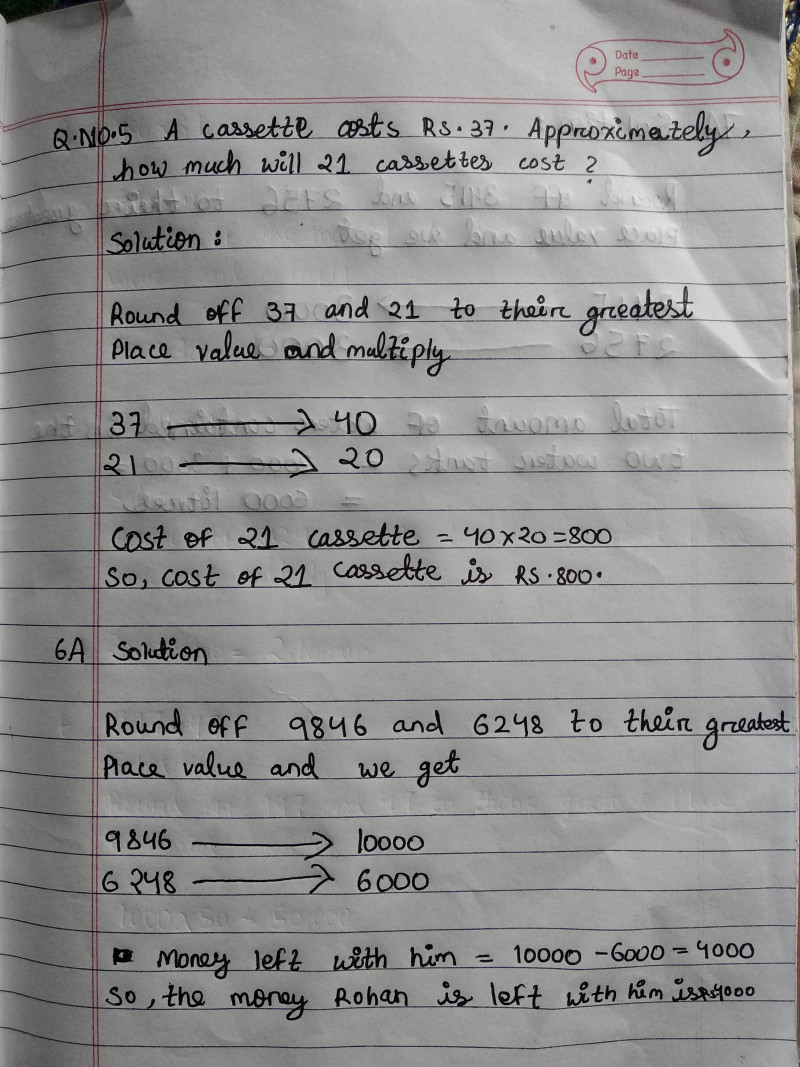 Date
Page
Q.NO.5 A cassette costs Rs.37. Approximately,
how much will 21 cassettes cost ?
Solution :
Round off 37 and 21 to their greatest
Place value and multiply
37 → 40
21 → 20
Cost of 21 cassette = 40×20=800
So, cost of 21 cassette is RS.800.
6A Solution
Round off 9846 and 6248 to their greatest
Place value and we get
9846 → 10000
6248 → 6000
Money left with him = 10000 - 6000 = 4000
So, the money Rohan is left with him is Rs4000